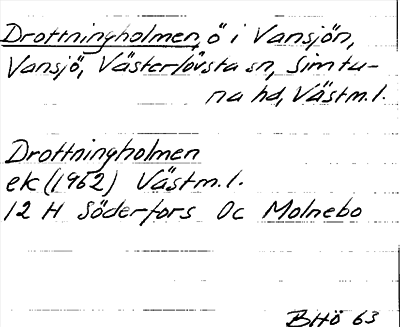 Drottningholmen, ö i Vansjön,
Vansjö, Västerlövsta sn, Simtu-
na hd, Västm.l.
Drottningholmen
ek (1962) Västm.l.
12 H Söderfors 0c Molnebo
BHö 63